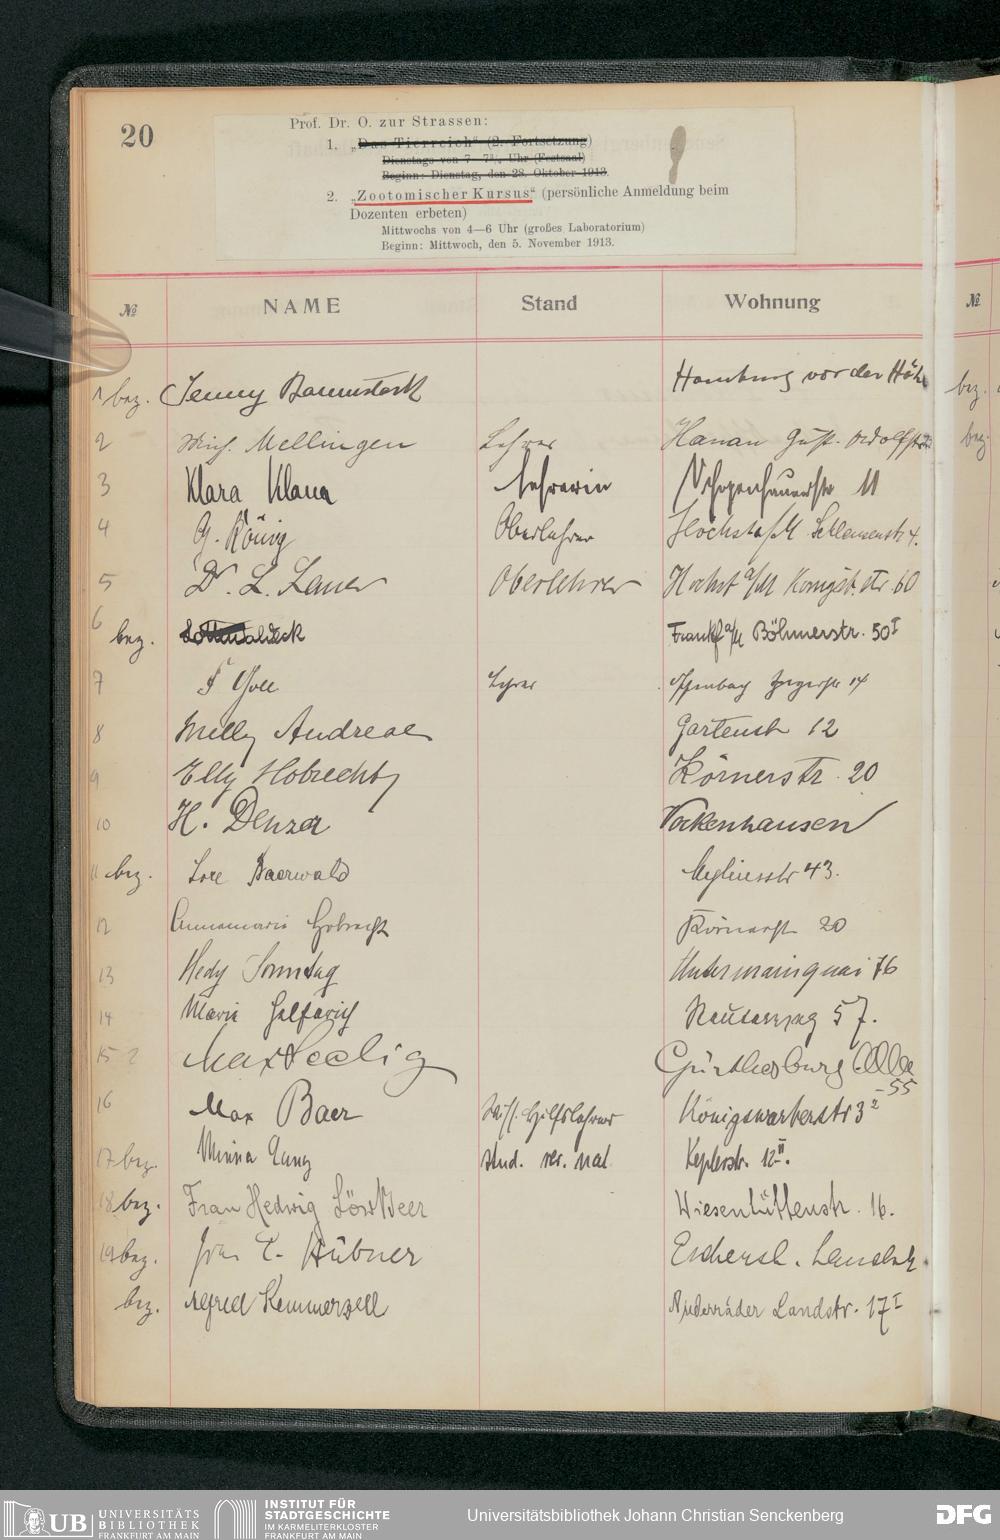 20
Prof. Dr. O. zur Strassen:
1. „Das Tierreich" (2. Fortsetzung)
Dienstags von 7—7¾ Uhr (Festsaal)
Beginn: Dienstag, den 28. Oktober 1913.
2. „Zootomischer Kursus" (persönliche Anmeldung beim
Dozenten erbeten)
Mittwochs von 4—6 Uhr (großes Laboratorium)
Beginn: Mittwoch, den 5. November 1913.
№ NAME Stand Wohnung №
1 bez. Jenny Baumstark Homburg vor der Höhe bez.
2 Mellingen Lehrer Hanau Gust. Adolfstr. bez.
3 Klara Klaua Lehrerin Schopenhauerstr 11
4 G. König Oberlehrer Höchst a/M 4.
5 Dr. L. Lauer Oberlehrer Höchst a/M Königst. str 60
6 bez. Frankf a/M Böhmerstr. 50I
7 F Lehrer Offenbach 14
8 Melly Andreae Gartenstr 12
9 Elly Hobrecht Körnerstr. 20
10 H. Denzer Vockenhausen
11 bez. Lore Baerwald Myliusstr 43.
12 Annemarie Hobrecht Körnerstr 20
13 Hedy Sonntag Untermainquai 76
14 Marie 57.
15 Max Seelig Günthersburg Allee
55
16 Max Baer Wiss. Hilfslehrer Königswarterstr 3 2
17 bez. Minna Lung stud. rer. nat. Keplerstr. 12II.
18 bez. Frau Hedwig Löw Beer Wiesenhüttenstr. 16.
19 bez. Frau E. Hübner Eschersh. Landstr.
bez. Alfred Kemmerzell Niederräder Landstr. 17I
UB UNIVERSITÄTS
BIBLIOTHEK
FRANKFURT AM MAIN
INSTITUT FÜR
STADTGESCHICHTE
IM KARMELITERKLOSTER
FRANKFURT AM MAIN
Universitätsbibliothek Johann Christian Senckenberg
DFG